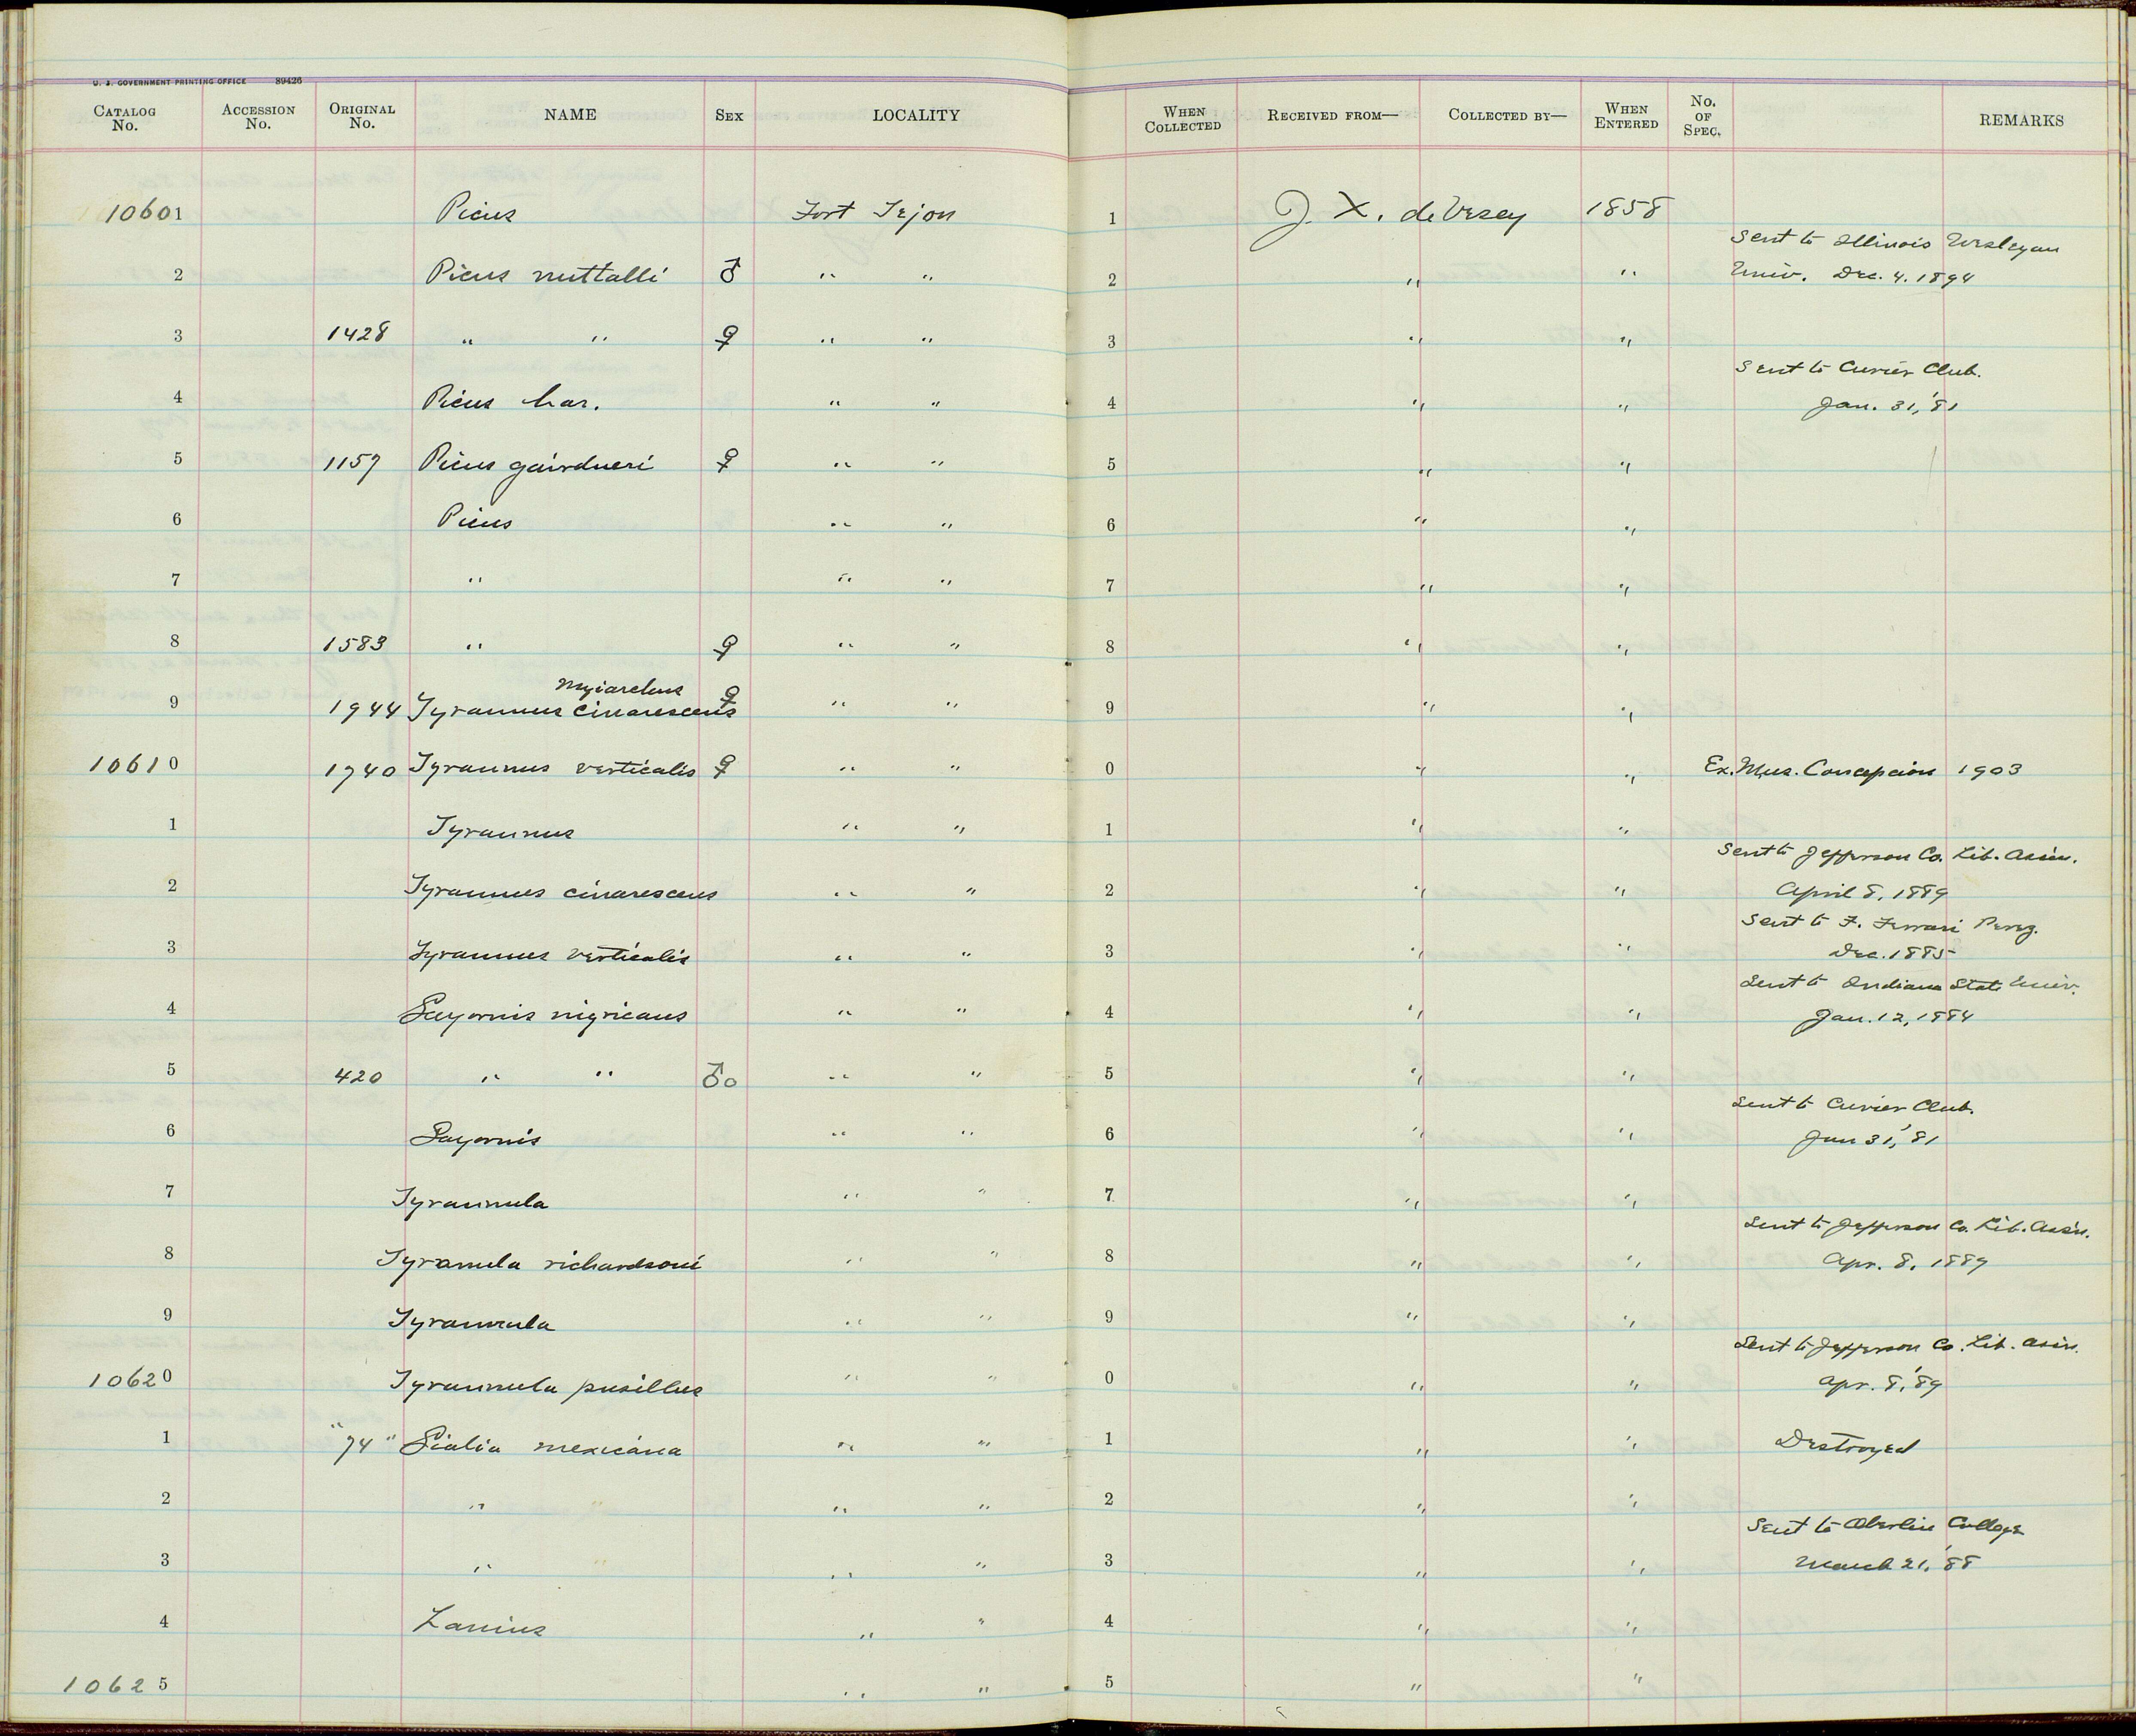 U. S. GOVERNMENT PRINTING OFFICE 89426
CATALOG No. ACCESSION No. ORIGINAL No. NAME SEX LOCALITY WHEN COLLECTED RECEIVED FROM— COLLECTED BY— WHEN ENTERED No. OF SPEC. REMARKS
10601 Picus Fort Tejon 1 J. X. de Vesey 1858
Sent to Illinois Wesleyan
2 Picus nuttalli ♂ " " 2 " " Univ. Dec. 4. 1894
3 1428 " " ♀ " " 3 " "
Sent to Cuvier Club.
4 Picus har. " " 4 " " Jan. 31, '81
5 1157 Picus gairdneri ♀ " " 5 " "
6 Picus " " 6 " "
7 " " " 7 " "
8 1583 " ♀ " " 8 " "
Myiarchus
9 1944 Tyrannus cinarescens ♀ " " 9 " "
10610 1740 Tyrannus verticalis ♀ " " 0 " " Ex. Mus. Concepcion 1903
1 Tyrannus " " 1 " "
Sent to Jefferson Co. Lib. Assn.
2 Tyrannus cinarescens " " 2 " " April 8, 1889
Sent to F. Ferrari Perez.
3 Tyrannus verticalis " " 3 " " Dec. 1885
Sent to Indiana State Univ.
4 Sayornis nigricans " " 4 " " Jan. 12, 1884
5 420 " " ♂o " " 5 " "
Sent to Cuvier Club.
6 Sayornis " " 6 " " Jan 31, '81
7 Tyrannula " " 7 " "
Sent to Jefferson Co. Lib. Assn.
8 Tyramula richardsoni " " 8 " " Apr. 8, 1889
9 Tyrannula " " 9 " "
Sent to Jefferson Co. Lib. Assn.
10620 Tyrannula pusillus " " 0 " " Apr. 8, '89
1 "74" Sialia mexicana " " 1 " " Destroyed
2 " " " " 2 " "
Sent to Oberlin College
3 " " " " 3 " " March 21, '88
4 Lanius " " 4 " "
10625 " " 5 " "